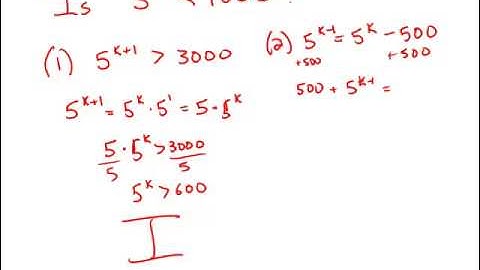 Is
(1) 5^{k+1} > 3000
5^{k+1} = 5^k · 5^1 = 5 · 5^k
5 · 5^k > 3000
5 5
5^k > 600
I
(2) 5^{k-1} = 5^k - 500
+500 +500
500 + 5^{k-1} =